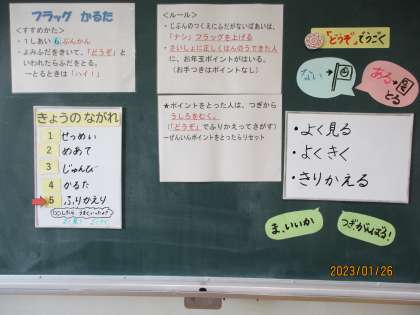 フラッグ かるた
<すすめかた>
・1しあい6ぷんかん
・よみふだをきいて、「どうぞ」と
いわれたらふだをとる。
→とるときは「ハイ！」
<ルール>
・じぶんのつくえにふだがないばあいは、
「ナシ」フラッグを上げる
・さいしょに正しくはんのうできた人
に、お年玉ポイントがはいる。
（お手つきはポイントなし）
★ポイントをとった人は、つぎから
うしろをむく。
（「どうぞ」でふりかえってさがす）
→ぜんいんポイントとったらリセット
「どうぞ」でうごく
ない→
ある→
とる
きょうの ながれ
1 せつめい
2 めあて
3 じゅんび
4 かるた
5 ふりかえり
・よく見る
・よくきく
・きりかえる
ま、いいか
つぎがんばる！
2023/01/26